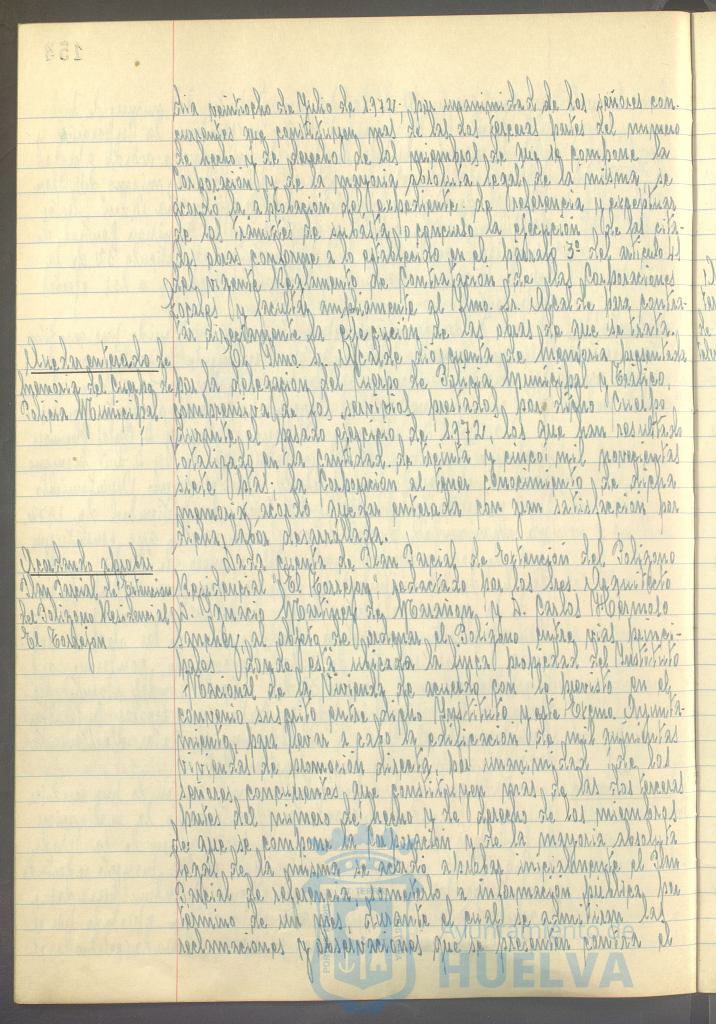 dia veintiocho de Julio de 1972; por unanimidad de los señores con-
currentes que constituyen mas de las dos terceras partes del numero
de hecho y de derecho de los miembros de que se compone la
Corporacion y de la mayoria absoluta legal de la misma, se
acordó la aprobación del expediente de referencia y exceptuar
de los trámites de subasta o concurso la ejecución de las cita-
das obras conforme a lo establecido en el párrafo 3º del artículo 41
del vigente Reglamento de Contratacion de las Corporaciones
Locales y facultar ampliamente al Ilmo. Sr. Alcalde para contra-
tar directamente la ejecucion de las obras de que se trata.
Quedar enterado de
memoria del Cuerpo de
Policia Municipal.
El Ilmo. Sr. Alcalde dio cuenta de Memoria presentada
por la delegacion del Cuerpo de Policia Municipal y Tráfico,
comprensiva de los servicios prestados por dicho Cuerpo
durante el pasado ejercicio de 1972, los que han resultado
totalizado en la cantidad de treinta y cinco mil novecientas
siete; la Corporacion al tener conocimiento de dicha
memoria acordó quedar enterada con gran satisfacción por
dicha labor desarrollada.
Acuerdo aprobar
Plan Parcial de Extension
del Poligono Residencial
El Torrejon
Dada cuenta de Plan Parcial de Extención del Poligono
Residencial "El Torrejon", redactado por los Sres. Arquitecto
D. Ignacio Martinez de Marañon, y D. Carlos Hermoso
Sanchez al objeto de ordenar el Poligono entre vias princi-
pales donde está ubicada la finca propiedad del Instituto
Nacional de la Vivienda de acuerdo con lo previsto en el
convenio suscrito entre dicho Instituto y este Excmo. Ayunta-
miento, para llevar a cabo la edificacion de mil quinientas
viviendas de promoción directa; por unanimidad de los
señores concurrentes que constituyen mas de las dos terceras
partes del numero de hecho y de derecho de los miembros
de que se compone la Corporación y de la mayoria absoluta
legal de la misma se acordó aprobar inicialmente el Plan
Parcial de referencia y someterlo a informacion publica por
termino de un mes durante el cual se admitiran las
reclamaciones y observaciones que se presenten contra el
Ayuntamiento de
HUELVA